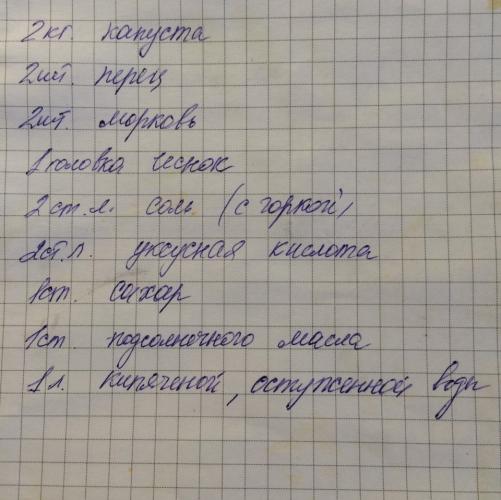 2кг. капуста
2шт. перец
2шт. морковь
1 головка чеснок
2 ст. л. соль (с горкой)
2ст. л. уксусная кислота
1ст. сахар
1ст. подсолночного масла
1 л. кипяченой, остуженной воды